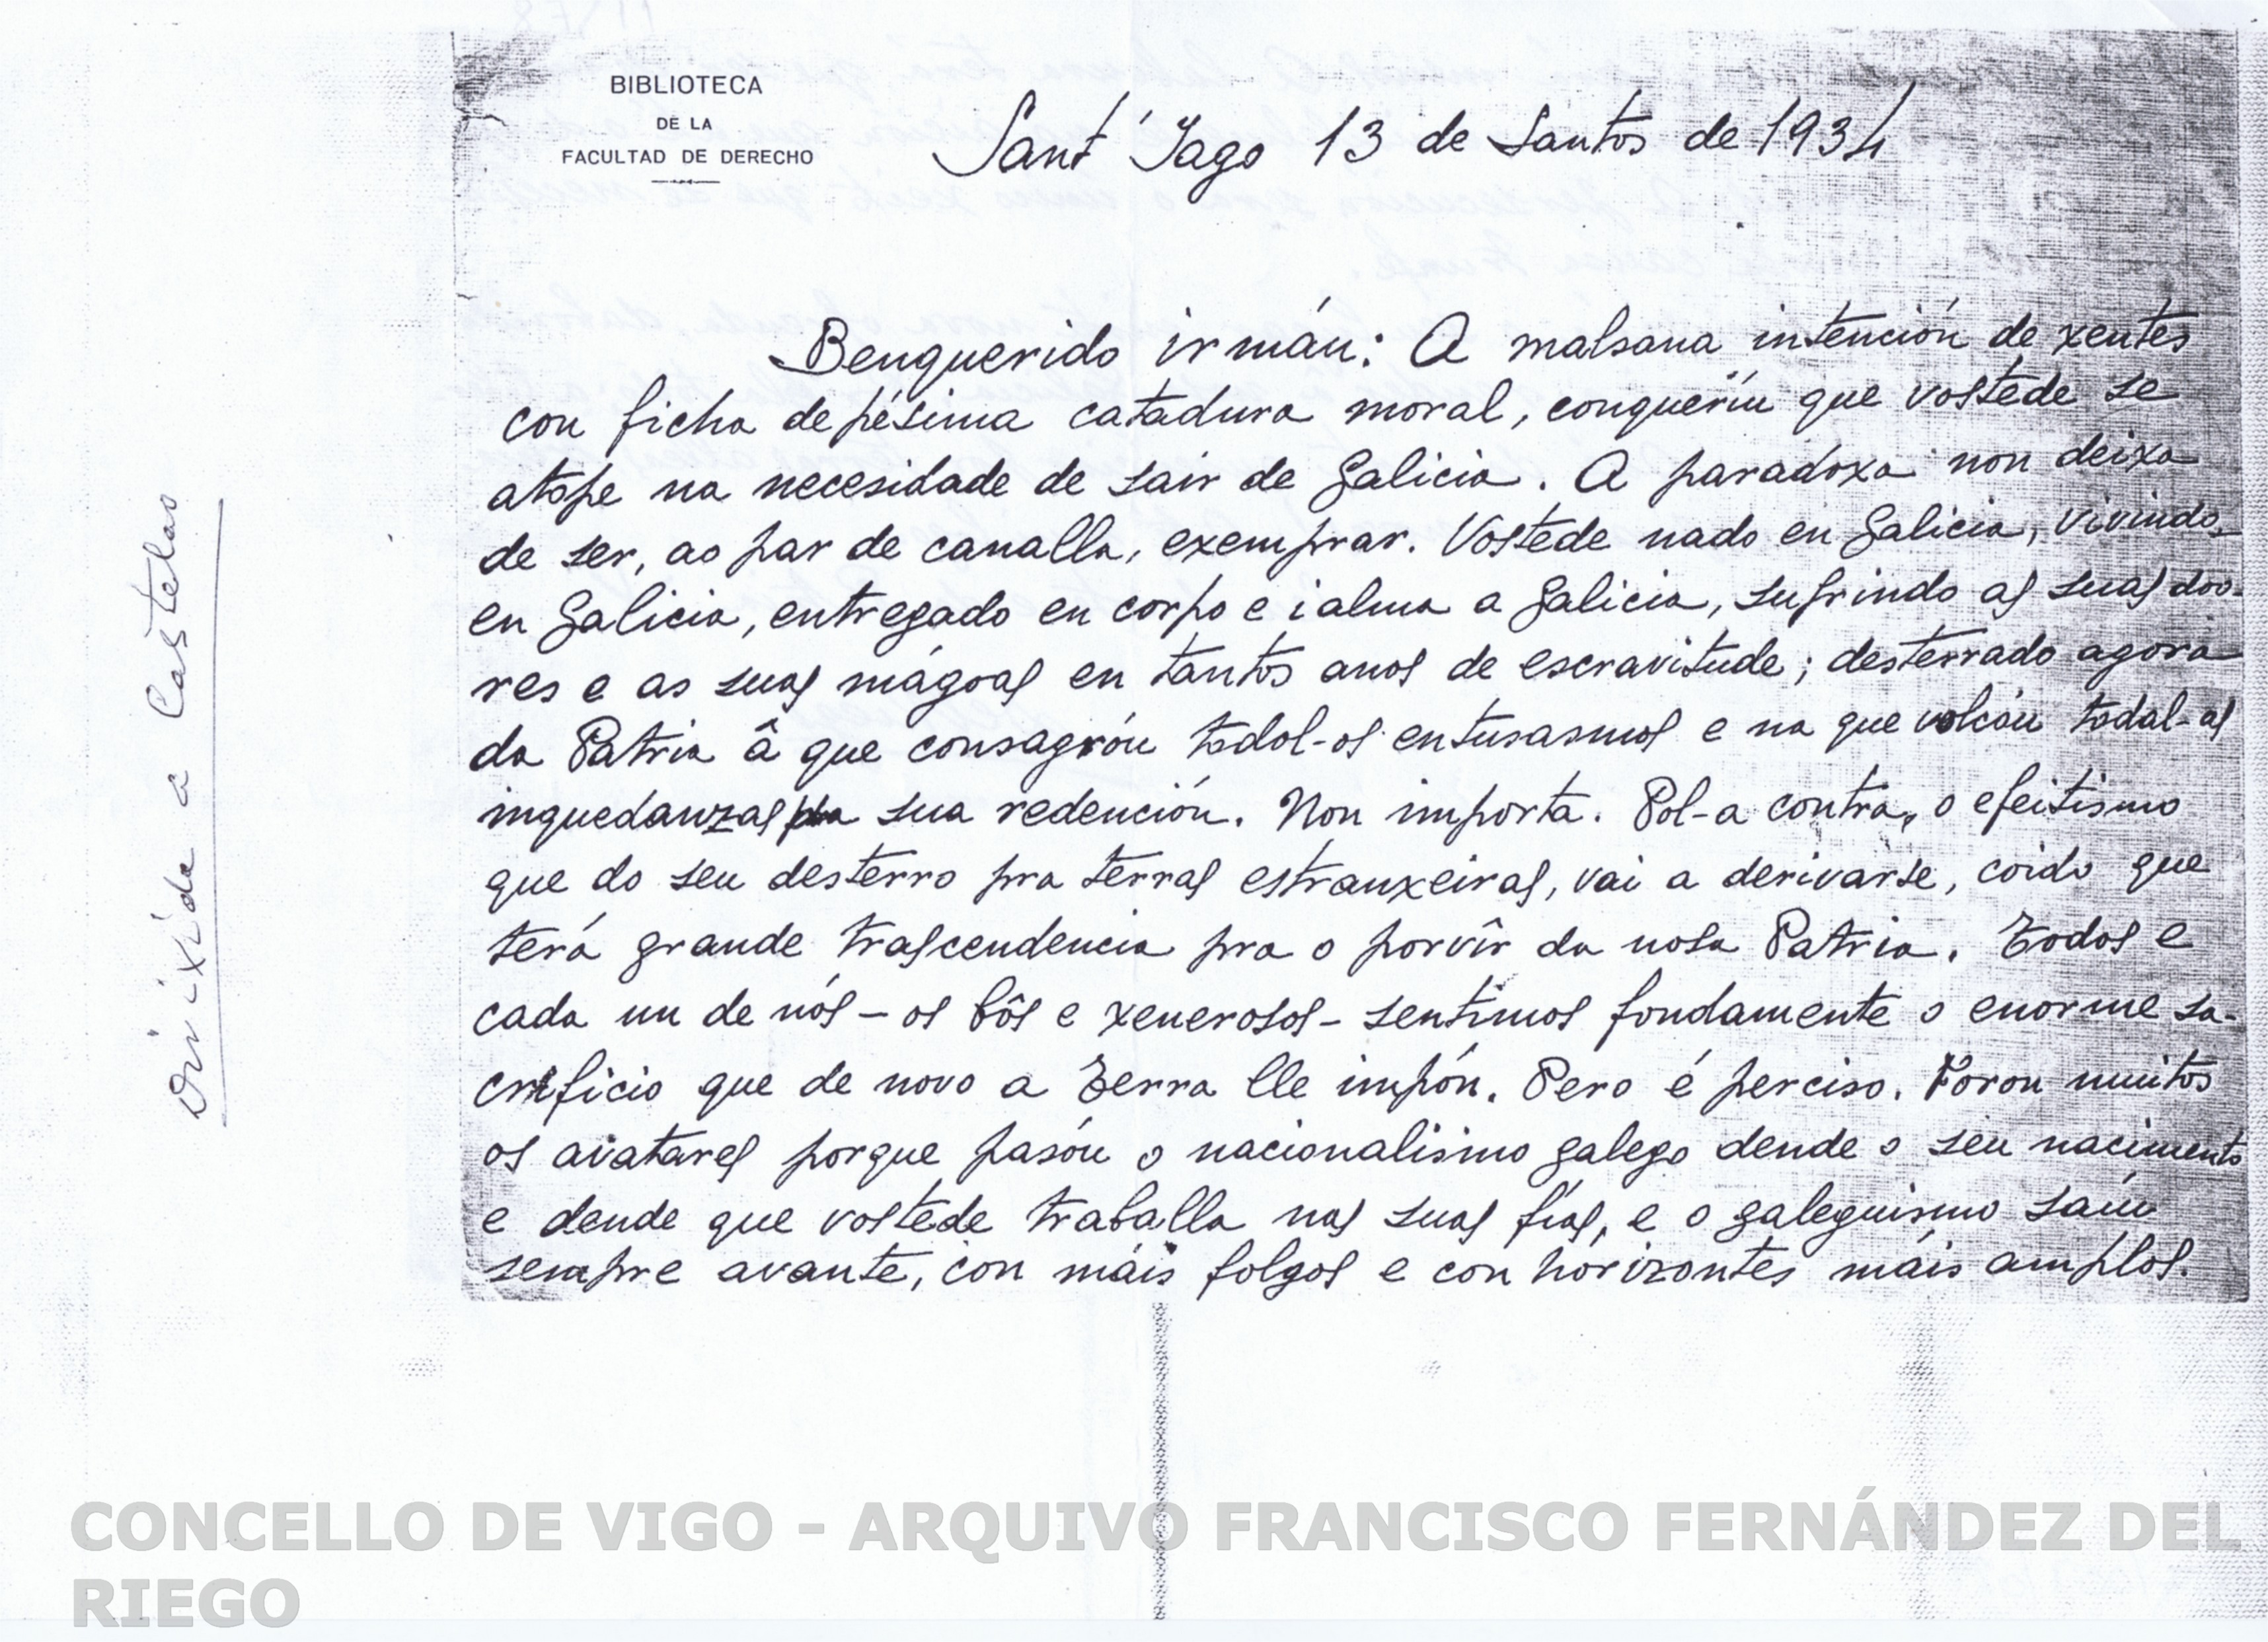 BIBLIOTECA
DE LA
FACULTAD DE DERECHO
Sant' Yago 13 de Santos de 1934
Benquerido irmán: A malsana intención de xentes
con ficha de pésima catadura moral, conqueríu que vostede se
atope na necesidade de sair de Galicia. A paradoxa non deixa
de ser, ao par de canalla, exemprar. Vostede nado en Galicia, vivindo
en Galicia, entregado en corpo e ialma a Galicia, sufrindo as suas doo-
res e as suas mágoas en tantos anos de escravitude; desterrado agora
da Patria â que consagróu todol-os entusasmos e na que volcóu todal-as
inquedanzas pla sua redención. Non importa. Pol-a contra, o efeitismo
que do seu desterro pra terras estranxeiras, vai a derivarse, coido que
terá grande trascendencia pra o porvîr da nosa Patria. Todos e
cada un de nós - os bôs e xenerosos - sentimos fondamente o enorme sa-
crificio que de novo a Terra lle impón. Pero é perciso. Foron muitos
os avatares porque pasóu o nacionalismo galego dende o seu nacimento
e dende que vostede traballa nas suas fías, e o galeguismo saíu
sempre avante, con máis folgos e con horizontes máis amplos.
Dirixida a Castelao
CONCELLO DE VIGO - ARQUIVO FRANCISCO FERNÁNDEZ DEL
RIEGO